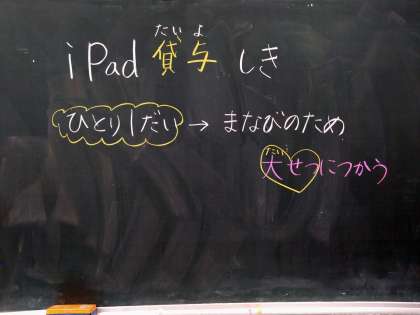 たいよ
iPad 貸与 しき
ひとり1だい → まなびのため
たい
大せつにつかう